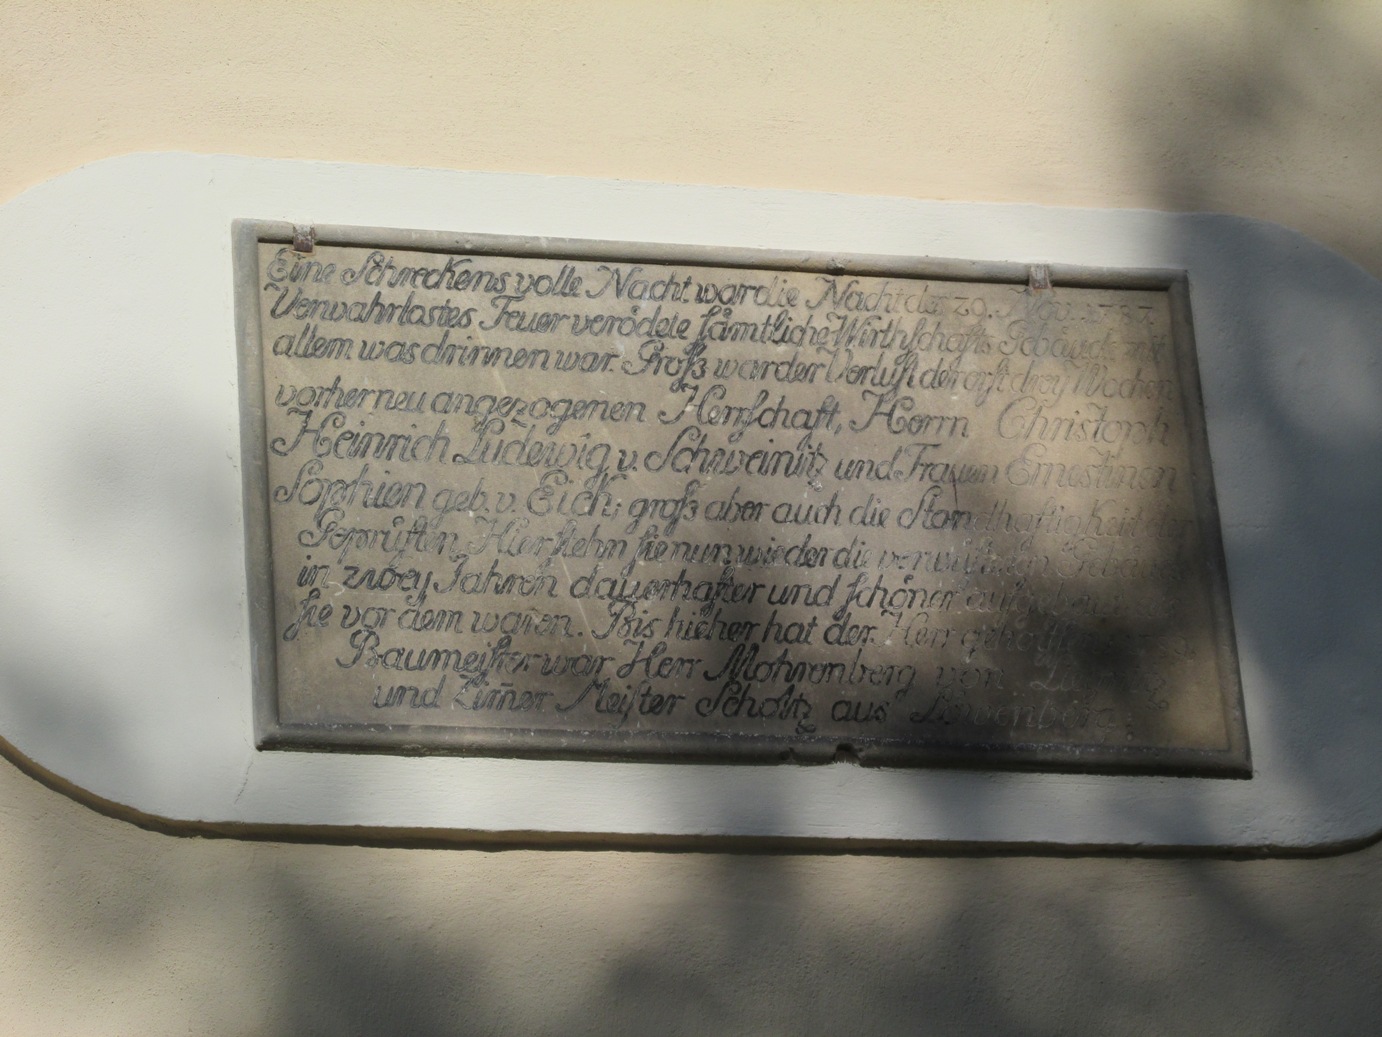 Eine Schreckens volle Nacht war die Nacht der 29. Nov. 1787.
Verwahrlostes Feuer verödete ſämtliche Wirthſchafts Gebäude mit
allem was drinnen war. Groſs war der Verluſt der erſt drey Wochen
vorher neu angezogenen Herrſchaft, Herrn Christoph
Heinrich Ludewig v. Schweinitz und Frauen Ernestinen
Sophien geb. v. Eick; groſs aber auch die Standhaftigkeit der
Geprüften. Hier ſtehn ſie nun wieder die verwüſteten Gebäude
in zwey Jahren dauerhafter und ſchöner aufgebaut als
ſie vor dem waren. Bis hieher hat der Herr geholffen
Baumeiſter war Herr Mohrenberg von
und Zim̄er Meiſter Scholtz aus Löwenberg.